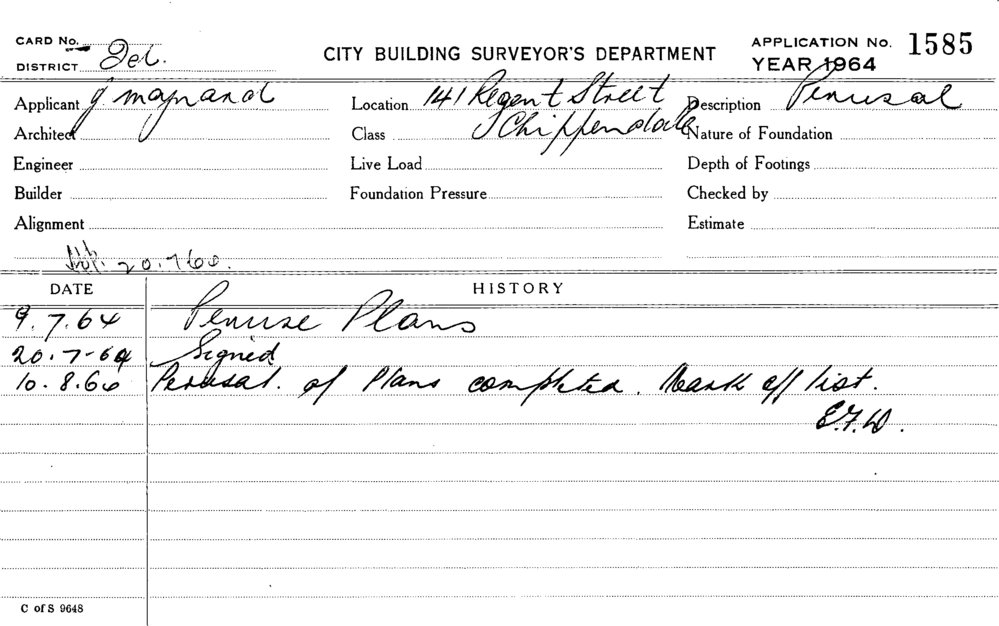 CARD No.
DISTRICT
CITY BUILDING SURVEYOR'S DEPARTMENT
APPLICATION No. 1585
YEAR 1964
Applicant J Maynard
Location 141 Regent Street
Chippendale
Description Perusal
Architect
Class
Nature of Foundation
Engineer
Live Load
Depth of Footings
Builder
Foundation Pressure
Checked by
Alignment
Estimate
20.7.60.
DATE HISTORY
9.7.64 Peruse Plans
20.7-64 Signed
10.8.66 Perusal. of Plans completed. Mark off list.
C of S 9648